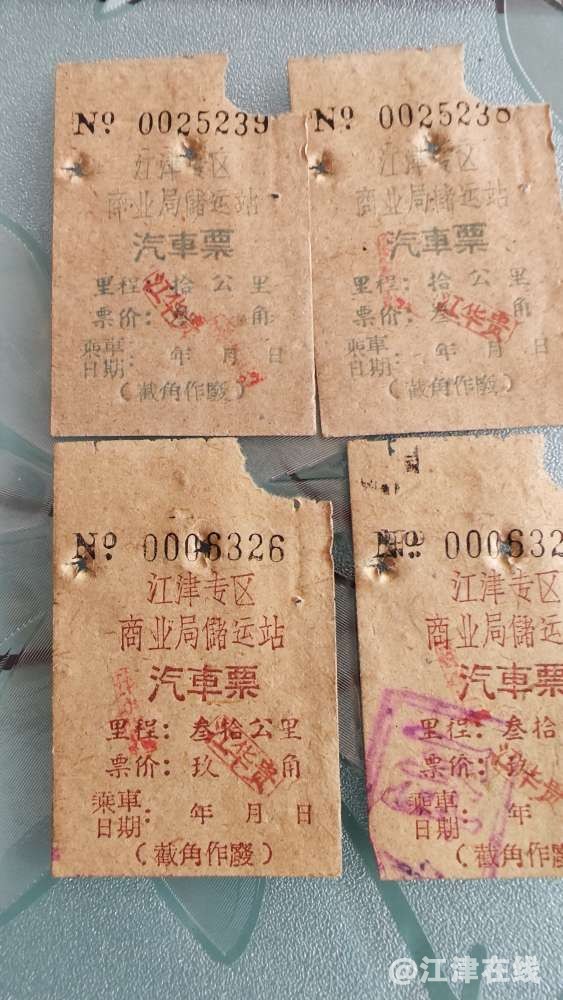 Nº 0025239
江津专区
商业局儲运站
汽車票
里程：拾公里
票价：叁角
乘車
日期：年月日
（截角作廢）
江华贵
Nº 0025238
江津专区
商业局儲运站
汽車票
里程：拾公里
票价：叁角
乘車
日期：年月日
（截角作廢）
江华贵
Nº 0006326
江津专区
商业局儲运站
汽車票
里程：叁拾公里
票价：玖角
乘車
日期：年月日
（截角作廢）
江华贵
Nº 000632
江津专区
商业局儲运
汽車票
里程：叁拾
票价：玖
乘車
日期：年
（截角作廢
江华贵
@江津在线